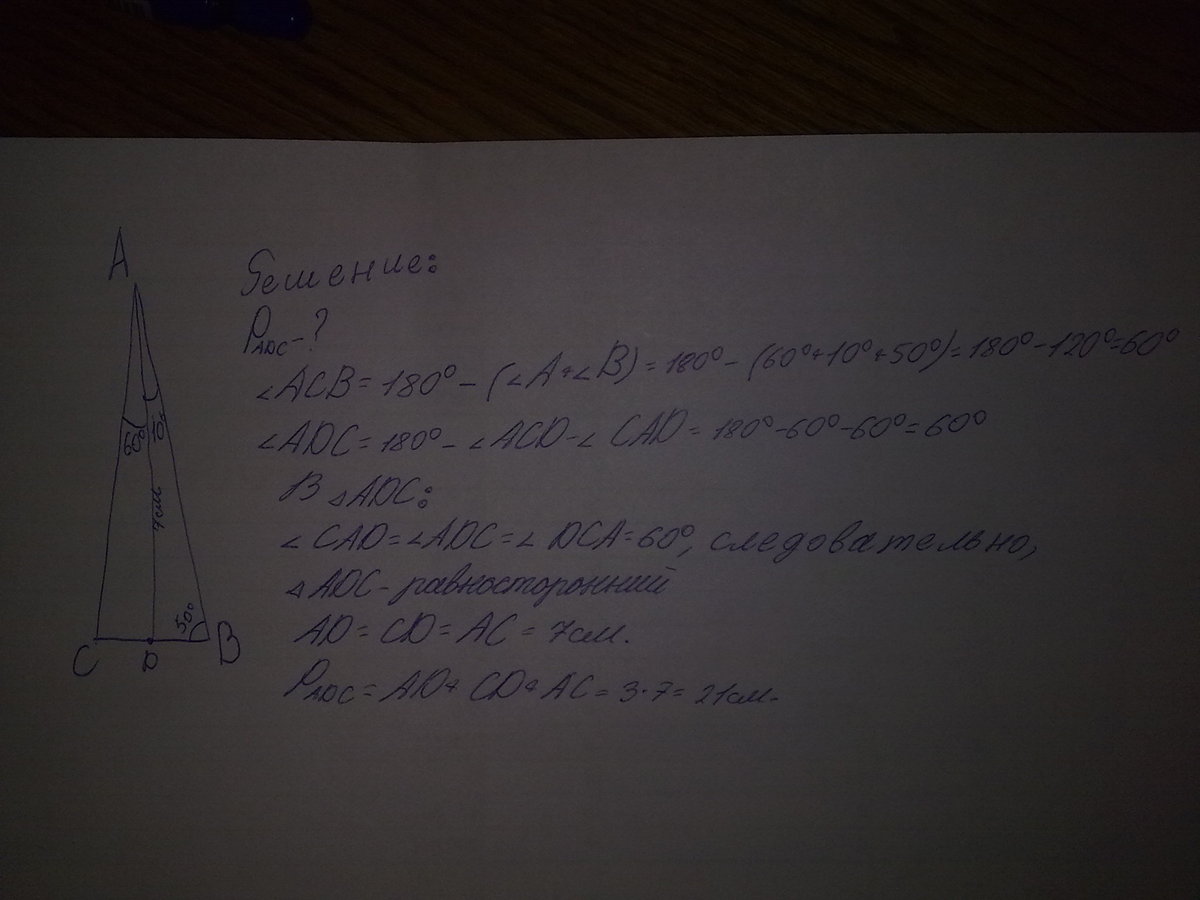 A
60°
10°
7см
50°
C
D
B
Решение:
P_ADC-?
∠ACB=180°-(∠A+∠B)=180°-(60°+10°+50°)=180°-120°=60°
∠ADC=180°-∠ACD-∠CAD=180°-60°-60°=60°
В △ADC:
∠CAD=∠ADC=∠DCA=60°, следовательно,
△ADC-равносторонний
AD=CD=AC=7см.
P_ADC=AD+CD+AC=3·7=21см.